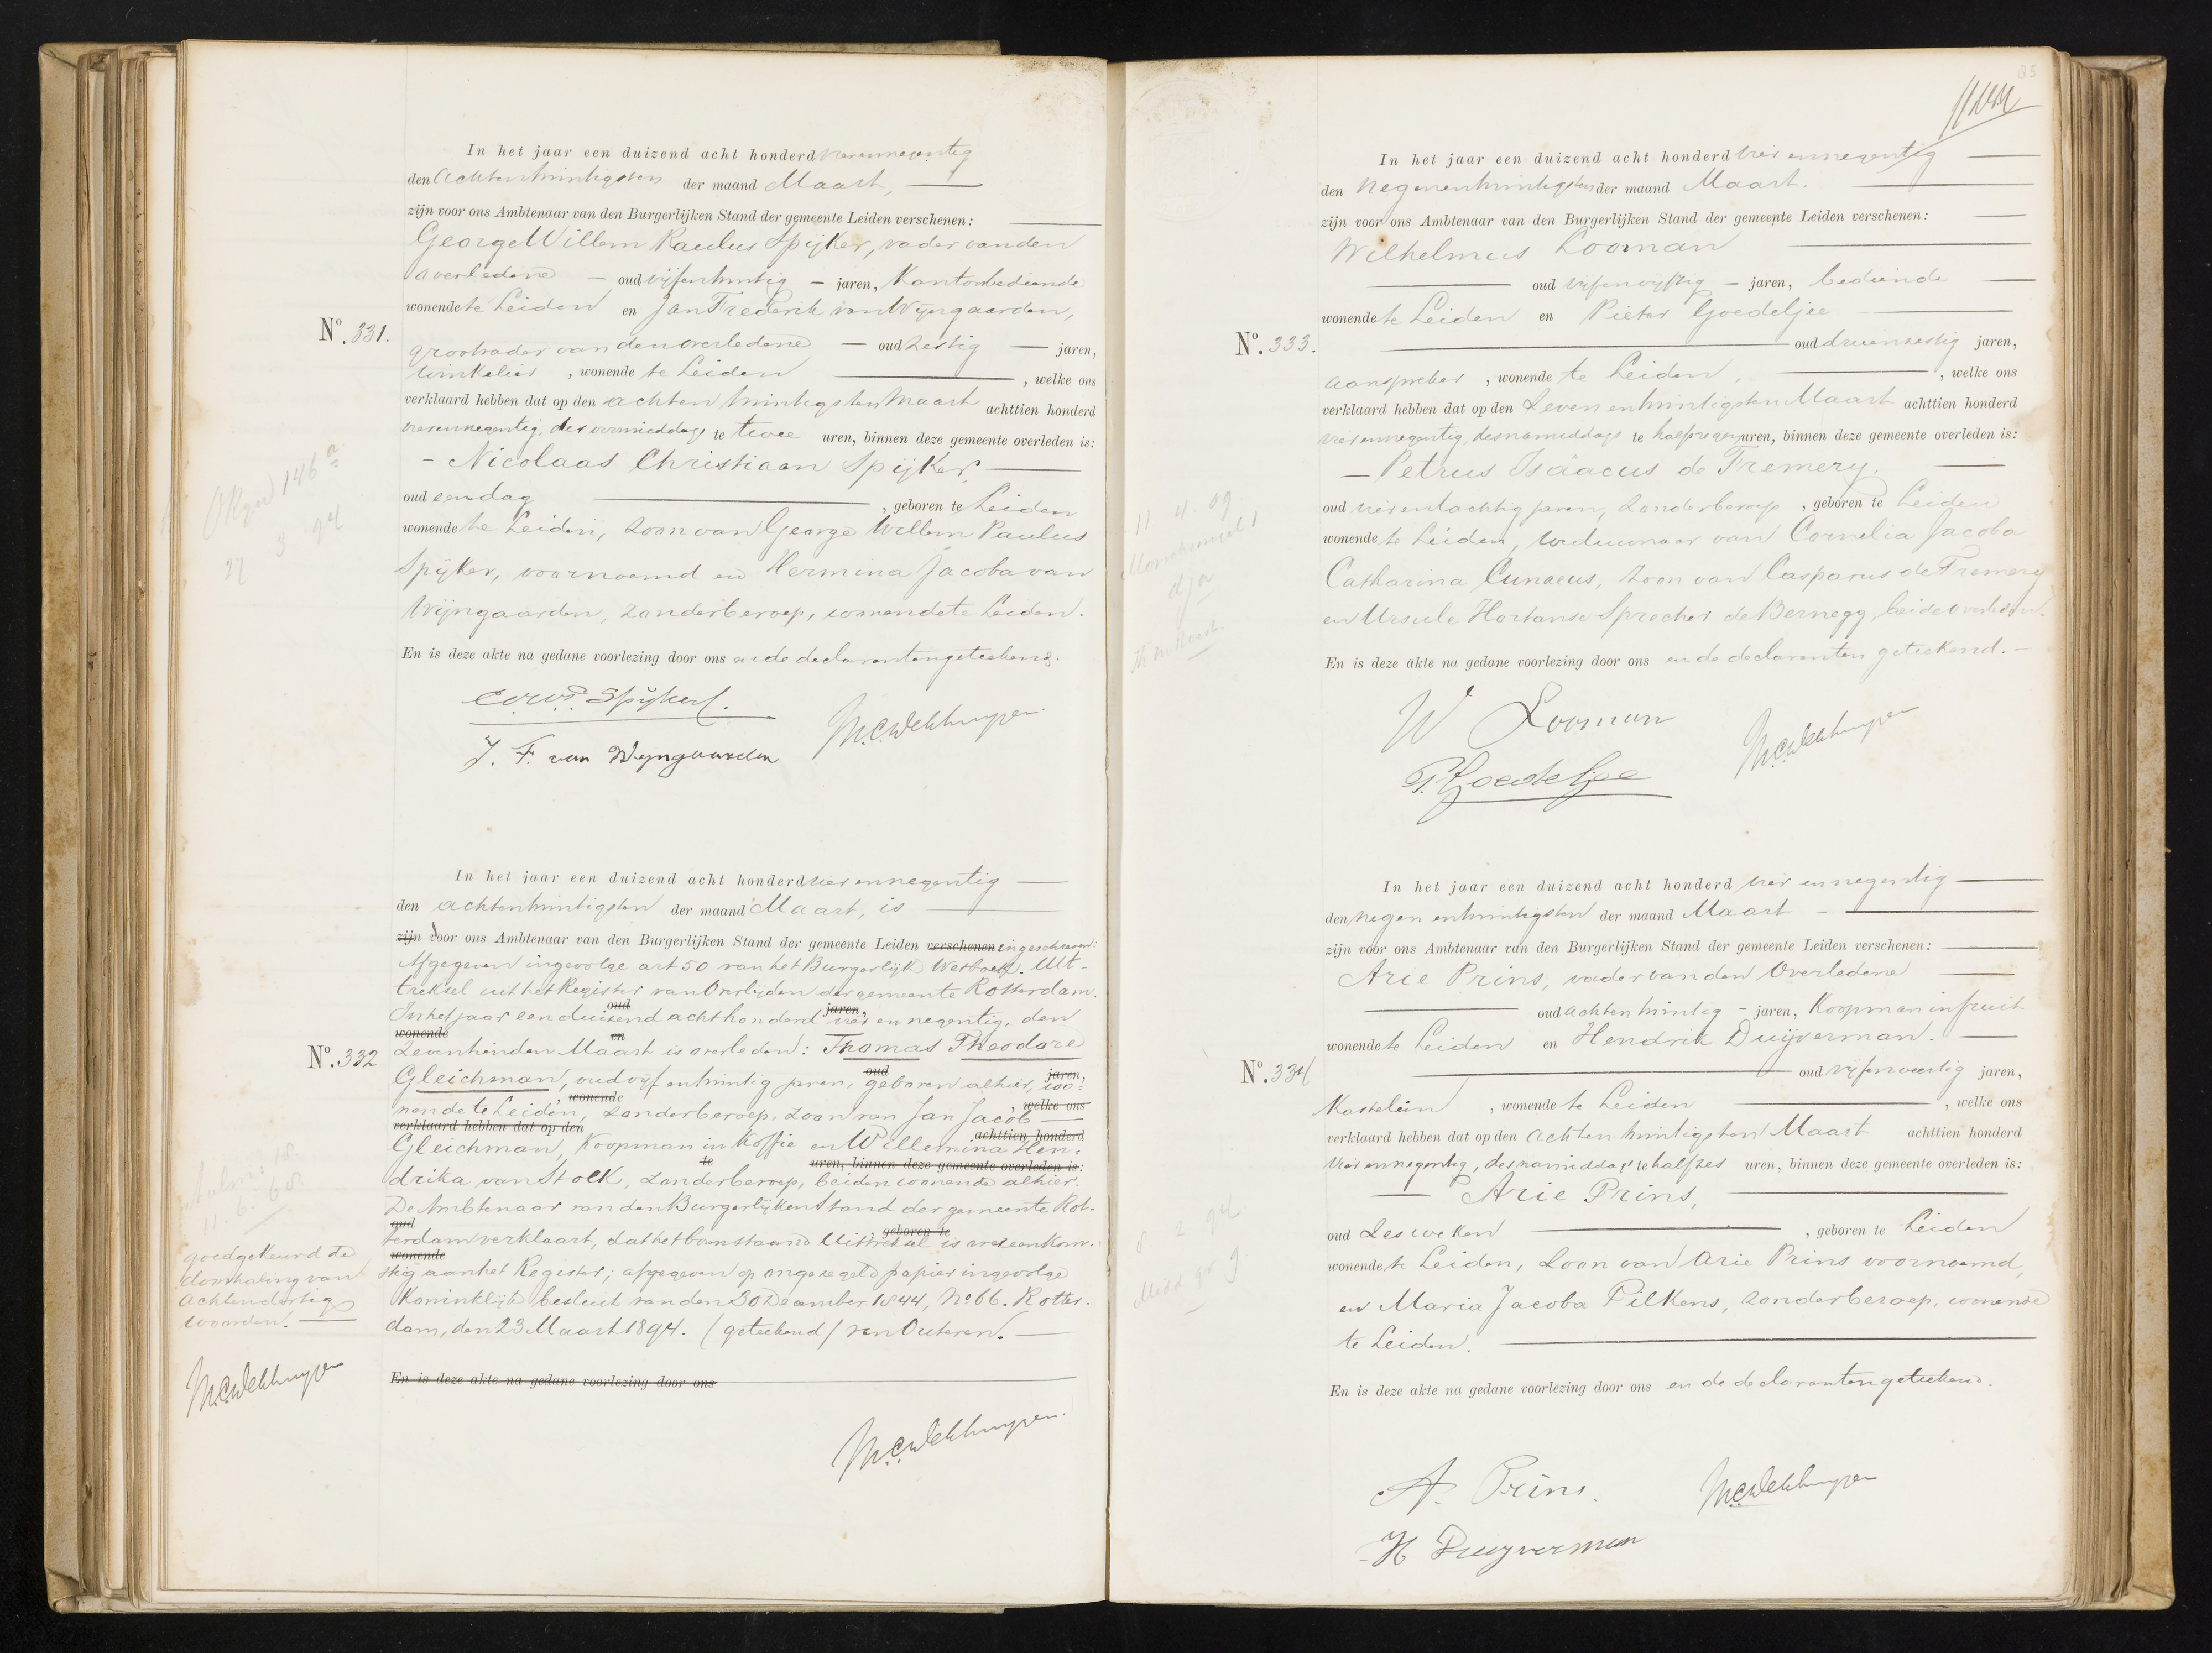 In het jaar een duizend acht honderd vierennegentig
den Achtentwintigsten der maand Maart,
zijn voor ons Ambtenaar van den Burgerlijken Stand der gemeente Leiden verschenen:
George Willem Paulus Spijker, vader van den
overledene oud vijfentwintig jaren, Kantoorbediende
wonende te Leiden en Jan Frederik van Wijngaarden,
No. 331.
grootvader van den overledene oud zestig jaren,
winkelier, wonende te Leiden, welke ons
verklaard hebben dat op den achtentwintigsten Maart achttien honderd
vierennegentig, des voormiddags te twee uren, binnen deze gemeente overleden is:
Nicolaas Christiaan Spijker,
oud een dag, geboren te Leiden
wonende te Leiden, zoon van George Willem Paulus
Spijker, voornoemd en Hermina Jacoba van
Wijngaarden, zonder beroep, wonende te Leiden.
En is deze akte na gedane voorlezing door ons en de declaranten geteekend.
Spijker.
J. F. van Wijngaarden
146a
27 3 94
In het jaar een duizend acht honderd vier en negentig
den achtentwintigsten der maand Maart, is
zijn voor ons Ambtenaar van den Burgerlijken Stand der gemeente Leiden verschenen ingeschreven:
Afgegeven ingevolge art 50 van het Burgerlijk Wetboek. Uit-
treksel uit het Register van Overlijden der gemeente Rotterdam.
oud jaren,
In het jaar een duizend acht honderd vier en negentig, den
wonende en
zeventienden Maart is overleden: Thomas Theodore
No. 332
oud jaren,
Gleichman, oud vijf en twintig jaren, geboren alhier, wo-
, wonende , welke ons
nende te Leiden, zonder beroep, zoon van Jan Jacob
verklaard hebben dat op den achttien honderd
Gleichman, Koopman in Koffie en Willemina Hen-
te uren, binnen deze gemeente overleden is:
drika van Stolk, zonder beroep, beiden wonende alhier.
De Ambtenaar van den Burgerlijken Stand der gemeente Rot-
oud , geboren te
terdam verklaart, dat het bovenstaand Uittreksel is overeenkom-
wonende
stig aan het Register; afgegeven op ongezegeld papier ingevolge
Koninklijk besluit van den 30 December 1844, No 66. Rotter-
dam, den 23 Maart 1894. (geteekend) van Outeren.
En is deze akte na gedane voorlezing door ons
11. 6. 68.
goedgekeurd de
doorhaling van
achtendertig
woorden.
In het jaar een duizend acht honderd vier en negentig
den negenentwintigsten der maand Maart.
zijn voor ons Ambtenaar van den Burgerlijken Stand der gemeente Leiden verschenen:
Wilhelmus Looman
oud vijfenvijftig jaren, bediende
wonende te Leiden en Pieter Goedeljee
No. 333.
oud drieenzestig jaren,
aanspreker, wonende te Leiden, welke ons
verklaard hebben dat op den Zevenentwintigsten Maart achttien honderd
vierennegentig, des namiddags te half negen uren, binnen deze gemeente overleden is:
Petrus Isäacus de Fremery.
oud vierentachtig jaren, zonder beroep, geboren te Leiden
wonende te Leiden, weduwnaar van Cornelia Jacoba
Catharina Cunaeus, zoon van Casparus de Fremery
en Ursule Hortense Sprecher de Bernegg, beide overleden.
En is deze akte na gedane voorlezing door ons en de declaranten geteekend.
W Looman
P. Goedeljee
11 4. 09
In het jaar een duizend acht honderd vier en negentig
den negen entwintigsten der maand Maart
zijn voor ons Ambtenaar van den Burgerlijken Stand der gemeente Leiden verschenen:
Arie Prins, vader van den Overledene
oud achtentwintig jaren, Koopman in fruit
wonende te Leiden en Hendrik Duijverman.
No. 334
oud vijfenveertig jaren,
Kastelein, wonende te Leiden, welke ons
verklaard hebben dat op den achtentwintigsten Maart achttien honderd
vier en negentig, des namiddags te half zes uren, binnen deze gemeente overleden is:
Arie Prins,
oud Zes weken, geboren te Leiden
wonende te Leiden, zoon van Arie Prins voornoemd,
en Maria Jacoba Pilkens, zonder beroep, wonende
te Leiden.
En is deze akte na gedane voorlezing door ons en de declaranten geteekend.
A. Prins.
H Duijverman
8 2 94